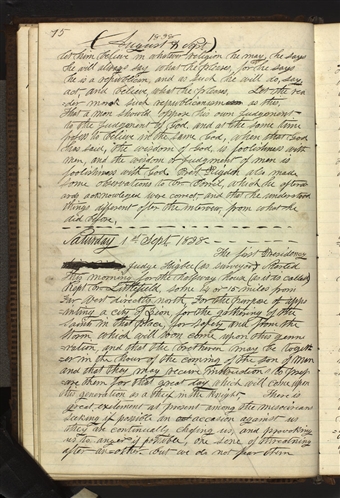 75
1838
(August & Sept)
let him believe in whatever religion he may, he says
he will always say what he pleases, for he says
he is a republican, and as such he will do, say,
act, and believe what he pleases. Let the rea
der mark such republicanism as this,
That a man should oppose his own judgement
to the judgement of God, and at the same time
profess to believe in the same God, when that God
has said, the wisdom of God, is foolishness with
men, and the wisdom or judgment of men is
foolishness with God. Prest Rigdon also made
some observations to Dr. Corril, which he after
ards acknowledged were correct, and that he understood
things different after the interview, from what he
did before,
Saturday 1st Sept. 1838
The first Presidency
judge Higbee (as surveyor) Started
this morning for the halfway house (as it is called)
Kept by Littlefield, some 14 or 15 miles from
Far West directly north, For the purpose of appo
inting a city of Zion, for the gathering of the
Saints in that place, for safety and from the
storm which will soon come upon this genn
ration, and that the brethren may be togeth
er in the hour of the coming of the son of Man
and that they may receive instruction to prep
are them for that great day which will come upon
this generation as a thief in the night. There is
great excitement at present among the Missourians
seeking if possible an occasion against us
they are continually chafing us, and provoking
us to anger if possible, one sene of threatning
after another, but we do not fear them